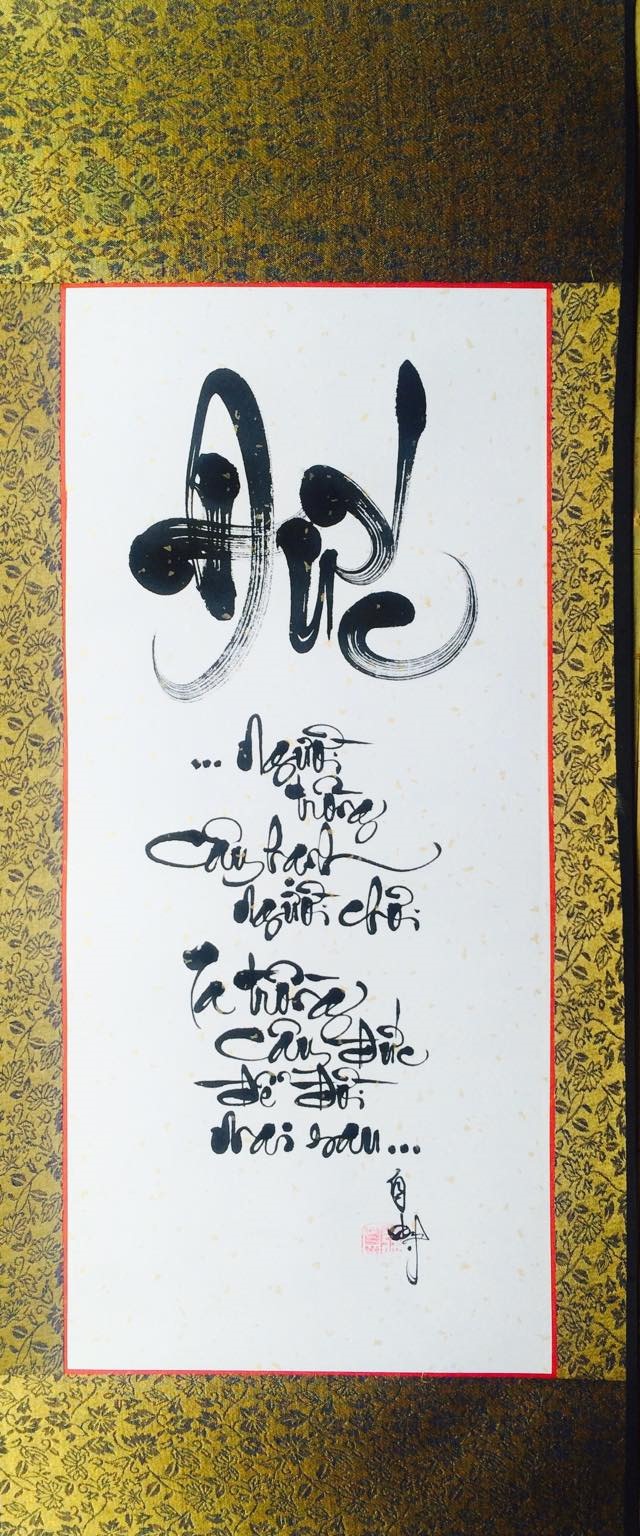 Đức
... Người
trồng
Cây hạnh
người chơi
Ta trồng
cây đức
để đời
mai sau...
自